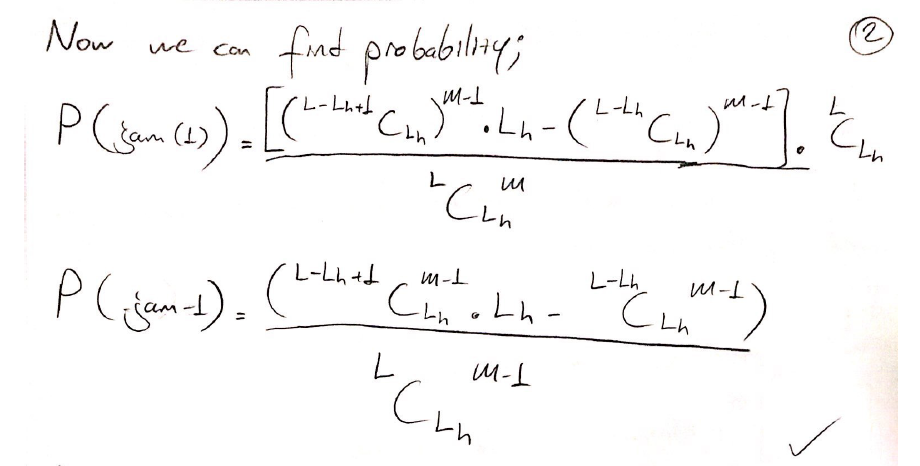 Now we can find probability; ②
P(jam(1)) = [(^{L-Lh+1}C_{Lh})^{m-1} . Lh - (^{L-Lh}C_{Lh})^{m-1}] . ^{L}C_{Lh}
^{L}C_{Lh}^{m}
P(jam-1) = (^{L-Lh+1}C_{Lh}^{m-1} . Lh - ^{L-Lh}C_{Lh}^{m-1})
^{L}C_{Lh}^{m-1}
✓